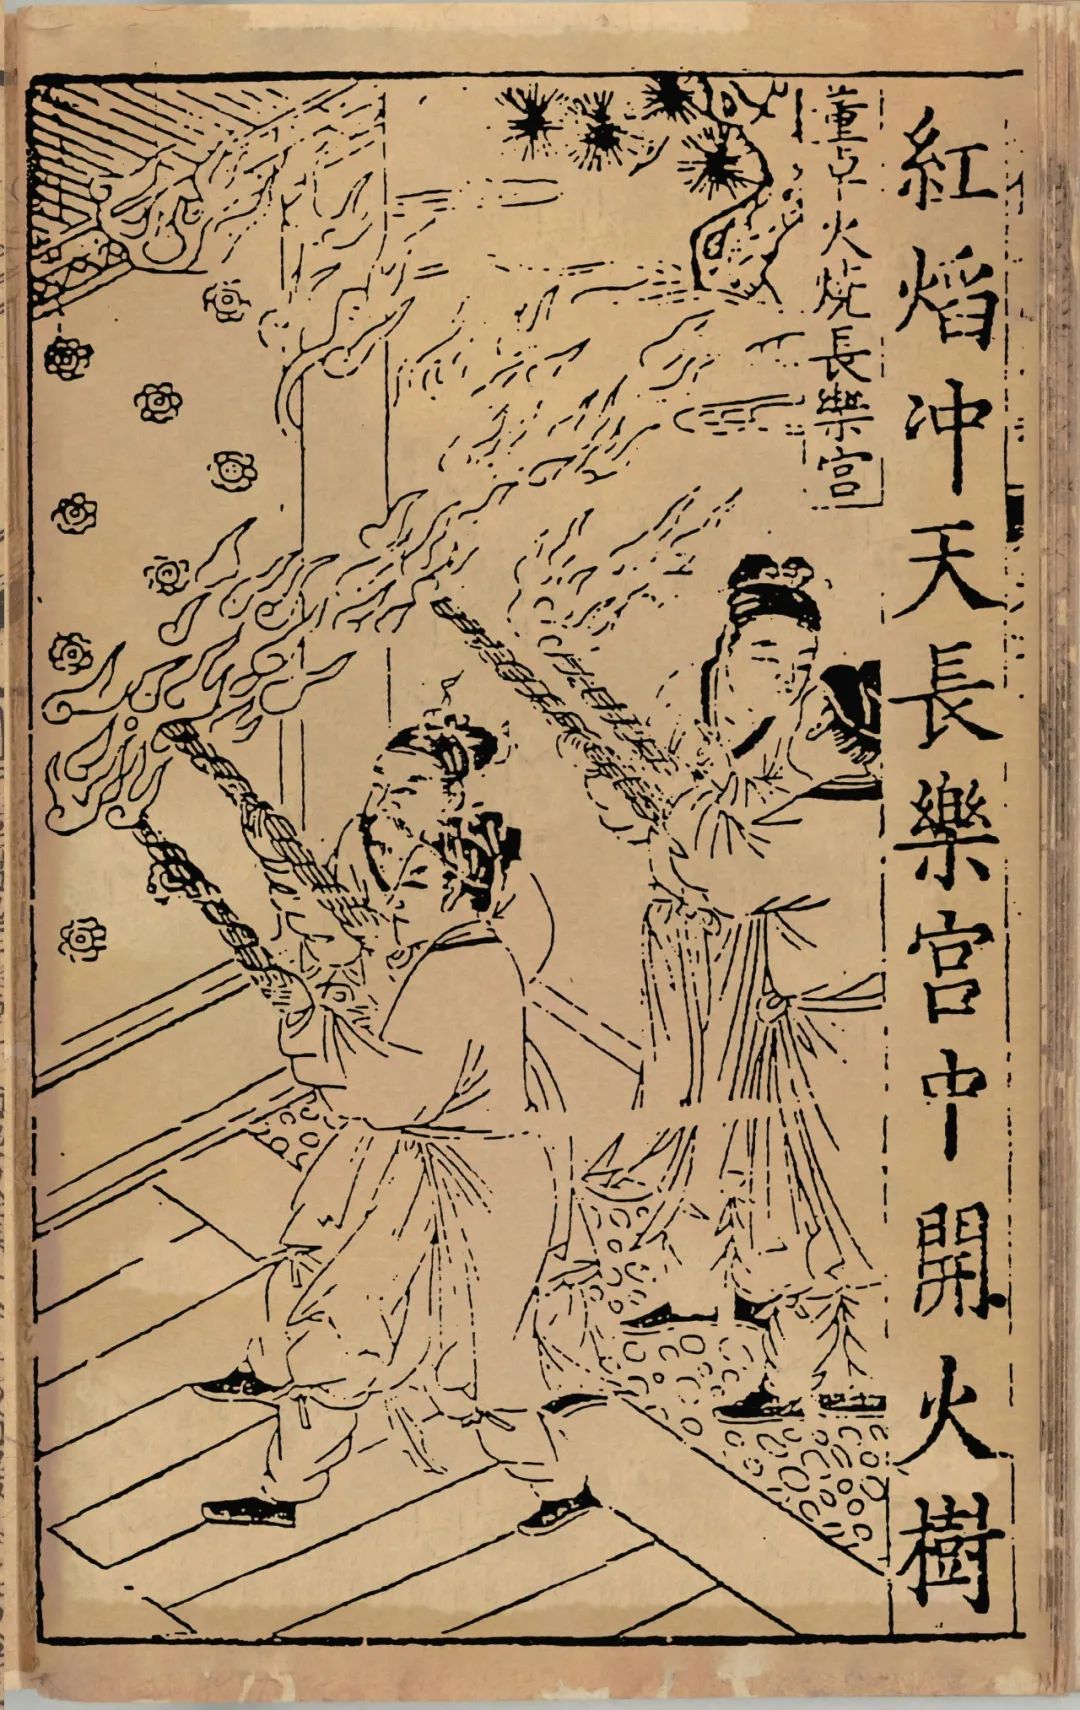 紅焰冲天長樂宮中開火樹
董卓火燒長樂宮